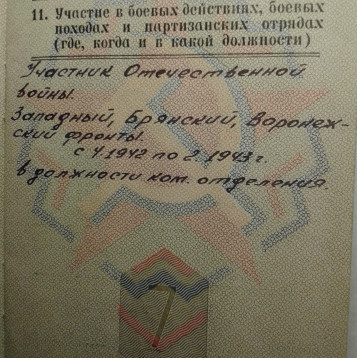 11. Участие в боевых действиях, боевых
походах и партизанских отрядах
(где, когда и в какой должности)
Участник Отечественной
войны.
Западный, Брянский, Воронеж-
ский фронты.
с 4.1942 по 2.1943 г.
в должности ком. отделения.
7